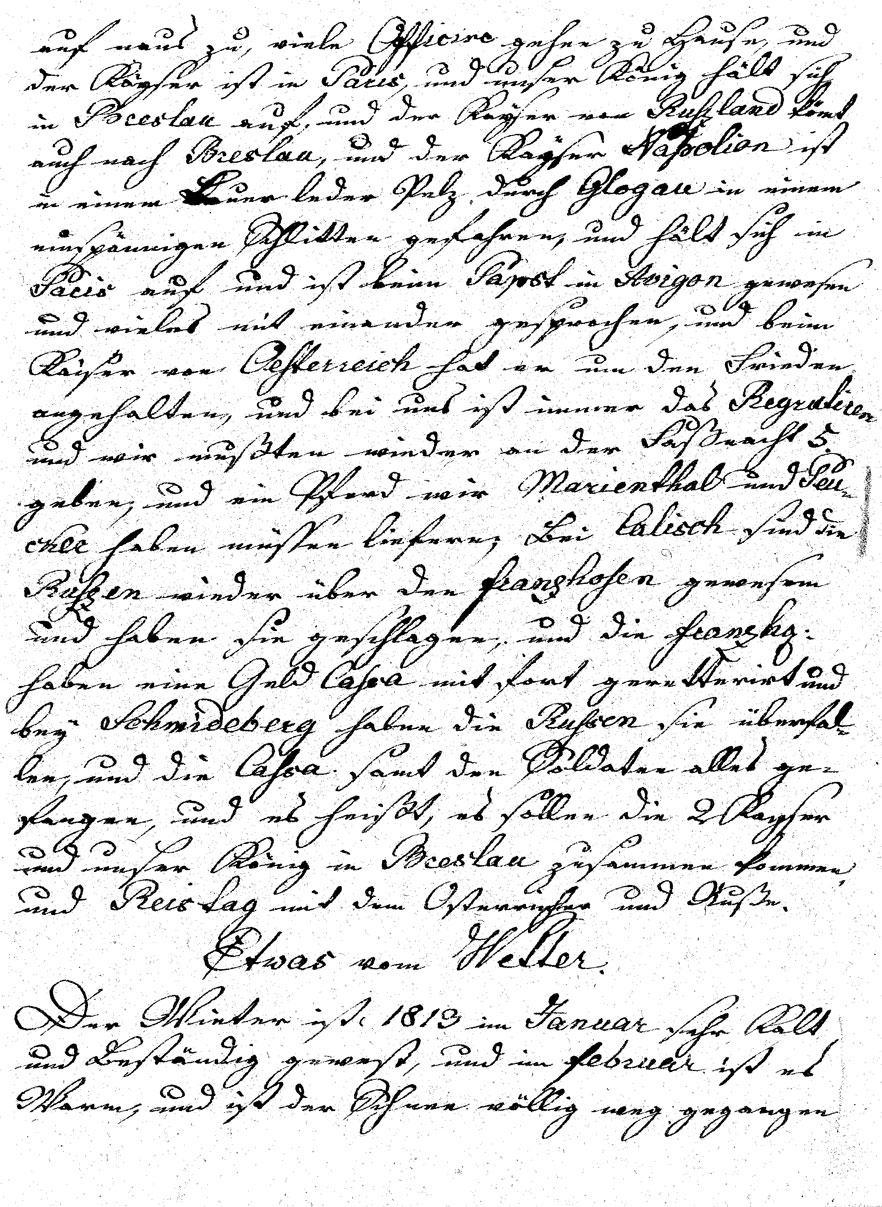 auf naus zu, viele Officire gehen zu Hause, und
der Kayser ist in Paris, und unser König hält sich
in Breslau auf, und der Kayser von Rußland kömt
auch nach Breslau, und der Kayser Napolion ist
in einem Bauer leder Pelz durch Glogau in einem
einspännigen Schlitten gefahren, und hält sich in
Paris auf und ist beim Papst in Avigon gewesen
und vieles mit einander gesprochen, und beim
Kaiser von Oesterreich hat er um den Frieden
angehalten, und bei uns ist immer das Regrutiren
und wir mußten wieder an der Faßnacht 5
geben, und ein Pferd wir Marienthal und Peu-
cker haben müssen liefern; Bei Calisch sind die
Rußen wieder über den franzhosen gewesem
und haben sie geschlagen, und die franzho:
haben eine Geld Cassa mit fort geretterirt und
bey Schmideberg haben die Russen sie überfal-
len, und die Cassa samt den Soldaten alles ge-
fangen, und es heißt, es sollen die 2 Kayser
und unser König in Breslau zusammen kommen,
und Reistag mit dem Osterreicher und Ruße.
Etwas vom Wetter.
Der Winter ist 1813 im Januar sehr Kalt
und Beständig gewest, und im februar ist es
Warm, und ist der Schnee völlig weg gegangen